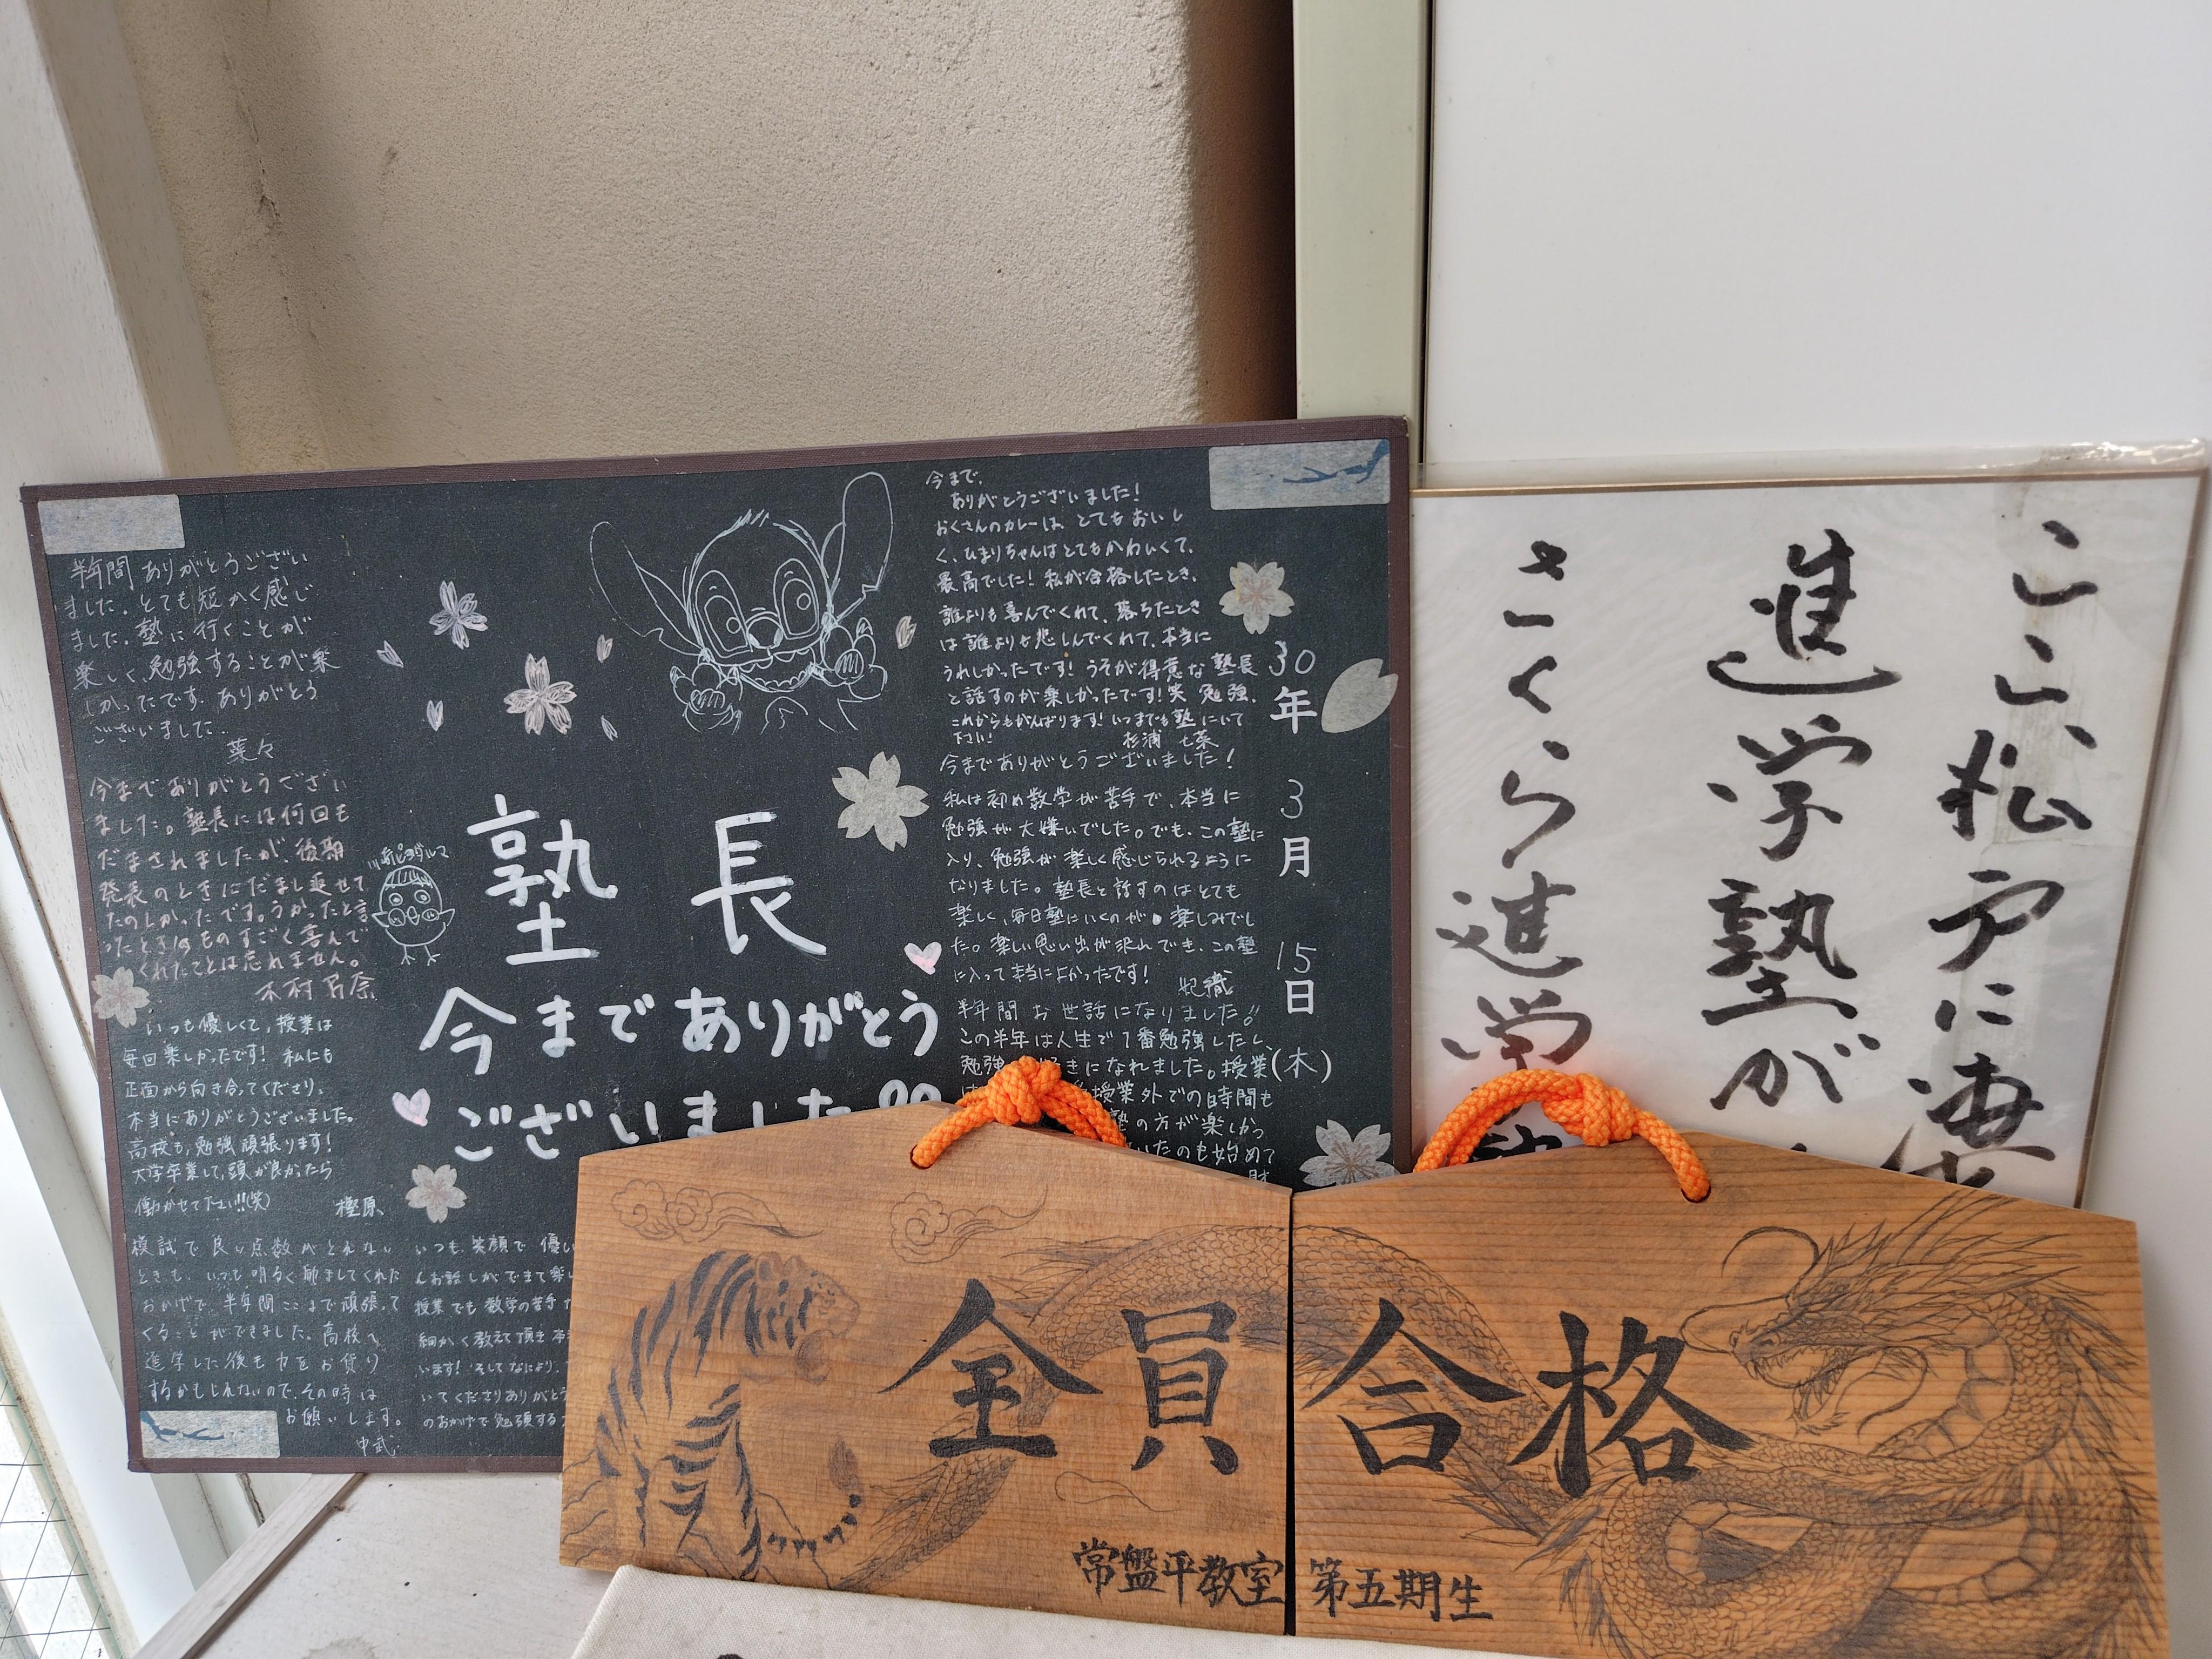 半年間ありがとうござい
ました。とても短かく感じ
ました。塾に行くことが
楽しく、勉強することが楽
しかったです。ありがとう
ございました。
菜々
今までありがとうござい
ました。塾長には何回も
だまされましたが、後期
発表のときにだまし返せて
たのしかったです。うかったと言
ったときはものすごく喜んで
くれたことは忘れません。
木村
いつも優しくて、授業は
毎回楽しかったです! 私にも
正面から向き合ってくださり、
本当にありがとうございました。
高校も、勉強頑張ります!
大学卒業して、頭が良かったら
働かせて下さい!!(笑)
樫原
模試で良い点数がとれない
ときも、いつも明るく励ましてくれた
おかげで、半年間ここまで頑張って
くることができました。高校へ
進学した後も力をお貸り
するかもしれないので、その時は
お願いします。
中武
いつも笑顔で優し
んお話しができて楽し
授業でも数学の苦手
細かく教えて頂き本
います! そしてなにより、
いてくださりありがと
のおかげで勉強する
塾長
今までありがとう
ございました
今まで、
ありがとうございました!
おくさんのカレーは、とてもおいし
く、ひまりちゃんはとてもかわいくて、
最高でした! 私が合格したとき、
誰よりも喜んでくれて、落ちたとき
は誰よりも悲しんでくれて、本当に
うれしかったです! うそが得意な塾長
と話すのが楽しかったです!笑 勉強、
これからもがんばります! いつまでも塾にいて
下さい!
杉浦 七菜
今までありがとうございました!
私は初め数学が苦手で、本当に
勉強が大嫌いでした。でも、この塾に
入り、勉強が楽しく感じられるように
なりました。塾長と話すのはとても
楽しく、毎日塾にいくのが楽しみでし
た。楽しい思い出が沢山でき、この塾
に入って本当によかったです!
妃織
半年間お世話になりました!!
この半年は人生で1番勉強したし、
勉強 好きになれました。授業
授業外での時間も
塾の方が楽しかっ
いたのも始めて
30年3月15日(木)
ここ、松戸に凄
進学塾が
さくら進学塾
全員合格
常盤平教室 第五期生